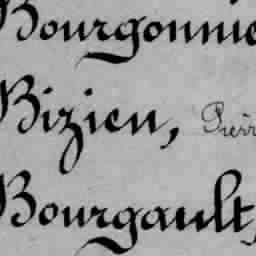 Bourgonnie
Bizien, Pierr
Bourgault,